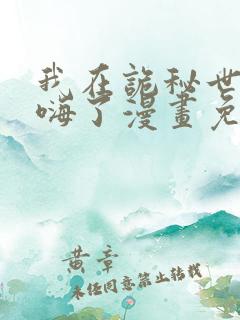 我在詭秘世
嗨了漫畫免
黄章
未经同意禁止转载